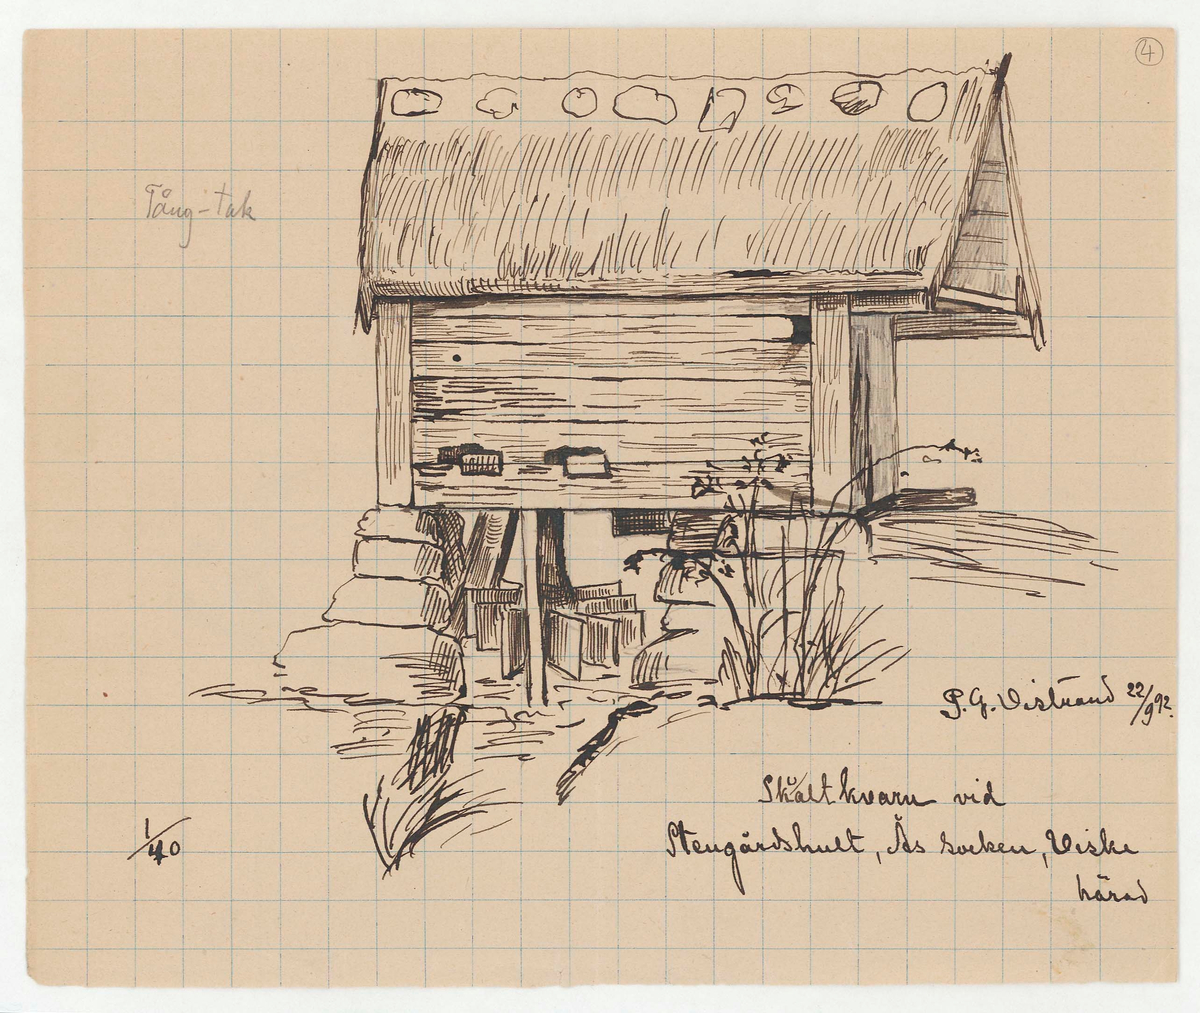 4
Tång-tak
P. G. Vistrand 22/9 92.
Skåltkvarn vid
Stengårdshult, Ås socken, Viske
härad
1/40